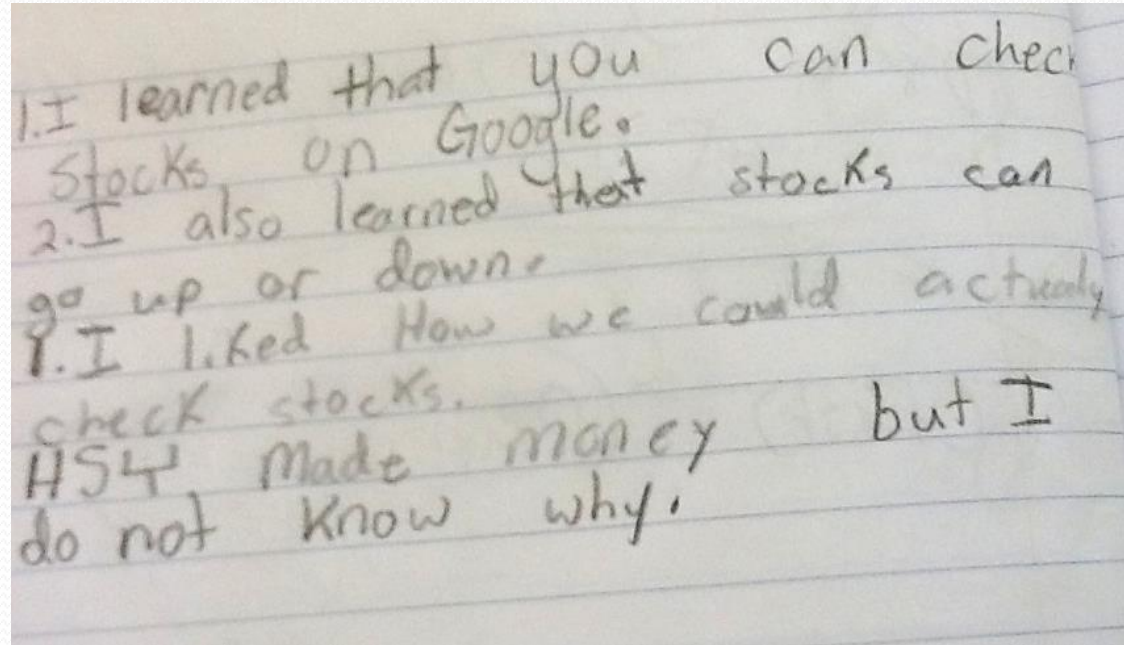 1.I learned that you can check
stocks on Google.
2.I also learned that stocks can
go up or down.
1.I liked How we could actualy
check stocks.
HSY made money but I
do not know why.